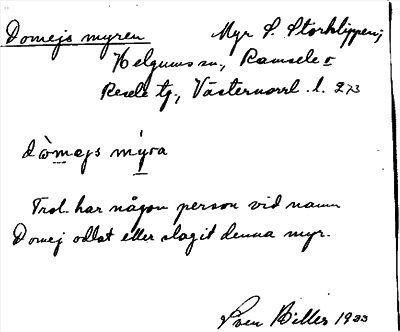 Domejs myren Myr S. Storklippen;
Helgums sn., Ramsele
Resele tg., Västernorrl. l. 273
dòmajs mýra
Trol. har någon person vid namn
Domej odlat eller slagit denna myr.
Sven Billes 1933